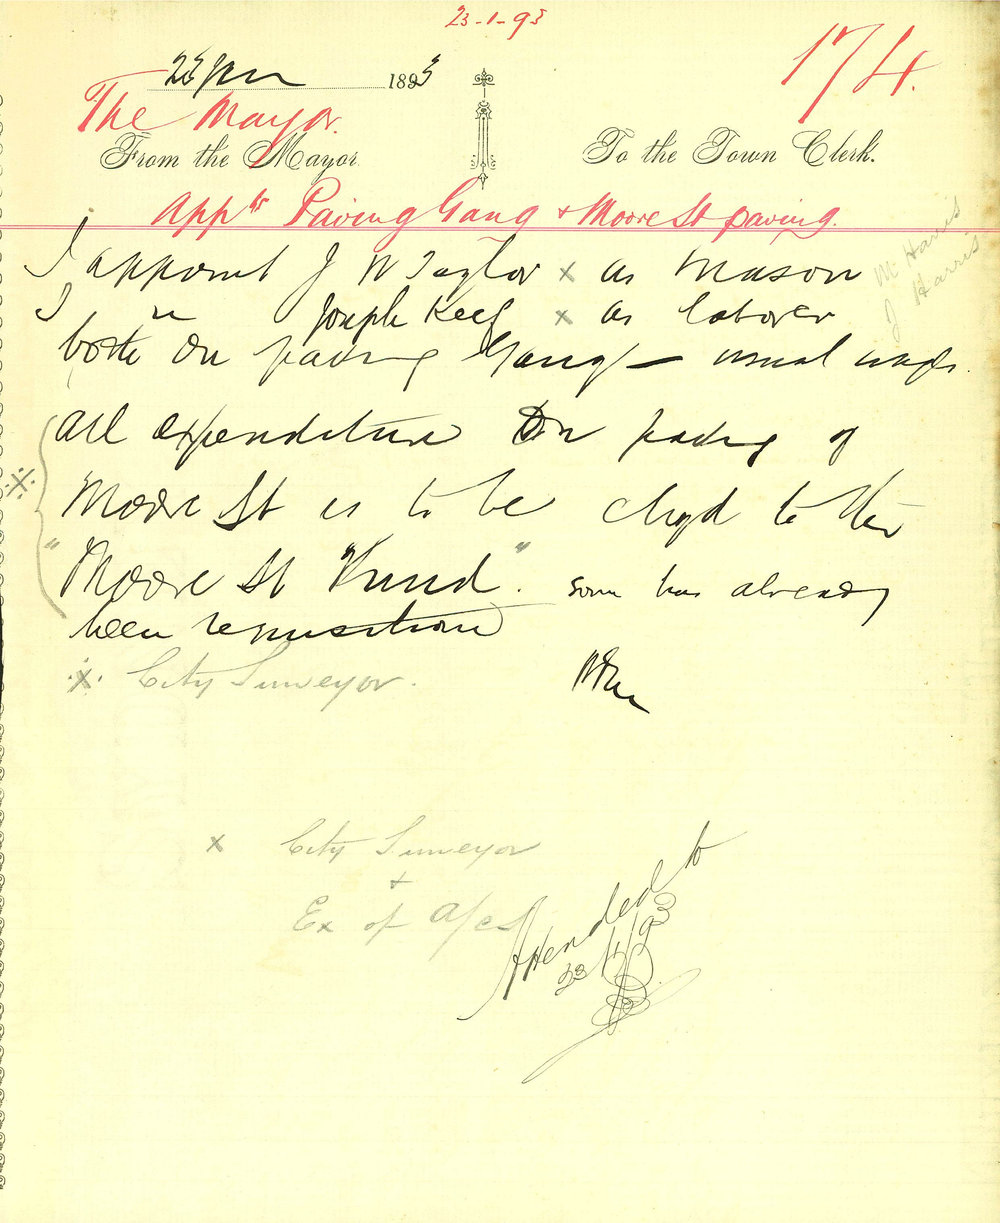 23-1-93
174.
23 Jan 1893
The Mayor.
From the Mayor. To the Town Clerk.
Appts Paving Gang & Moore St paving.
M Harris
J Harris
I appoint J W Taylor x as mason
I " Joseph Keef x as laborer
both on paving Gang – usual wages.
All expenditure on paving of
Moore St is to be chgd to the
"Moore St Fund". some has already
been requisitioned
※ City Surveyor.
x City Surveyor
+
Ex of a/cs
Attended to
23/1/93